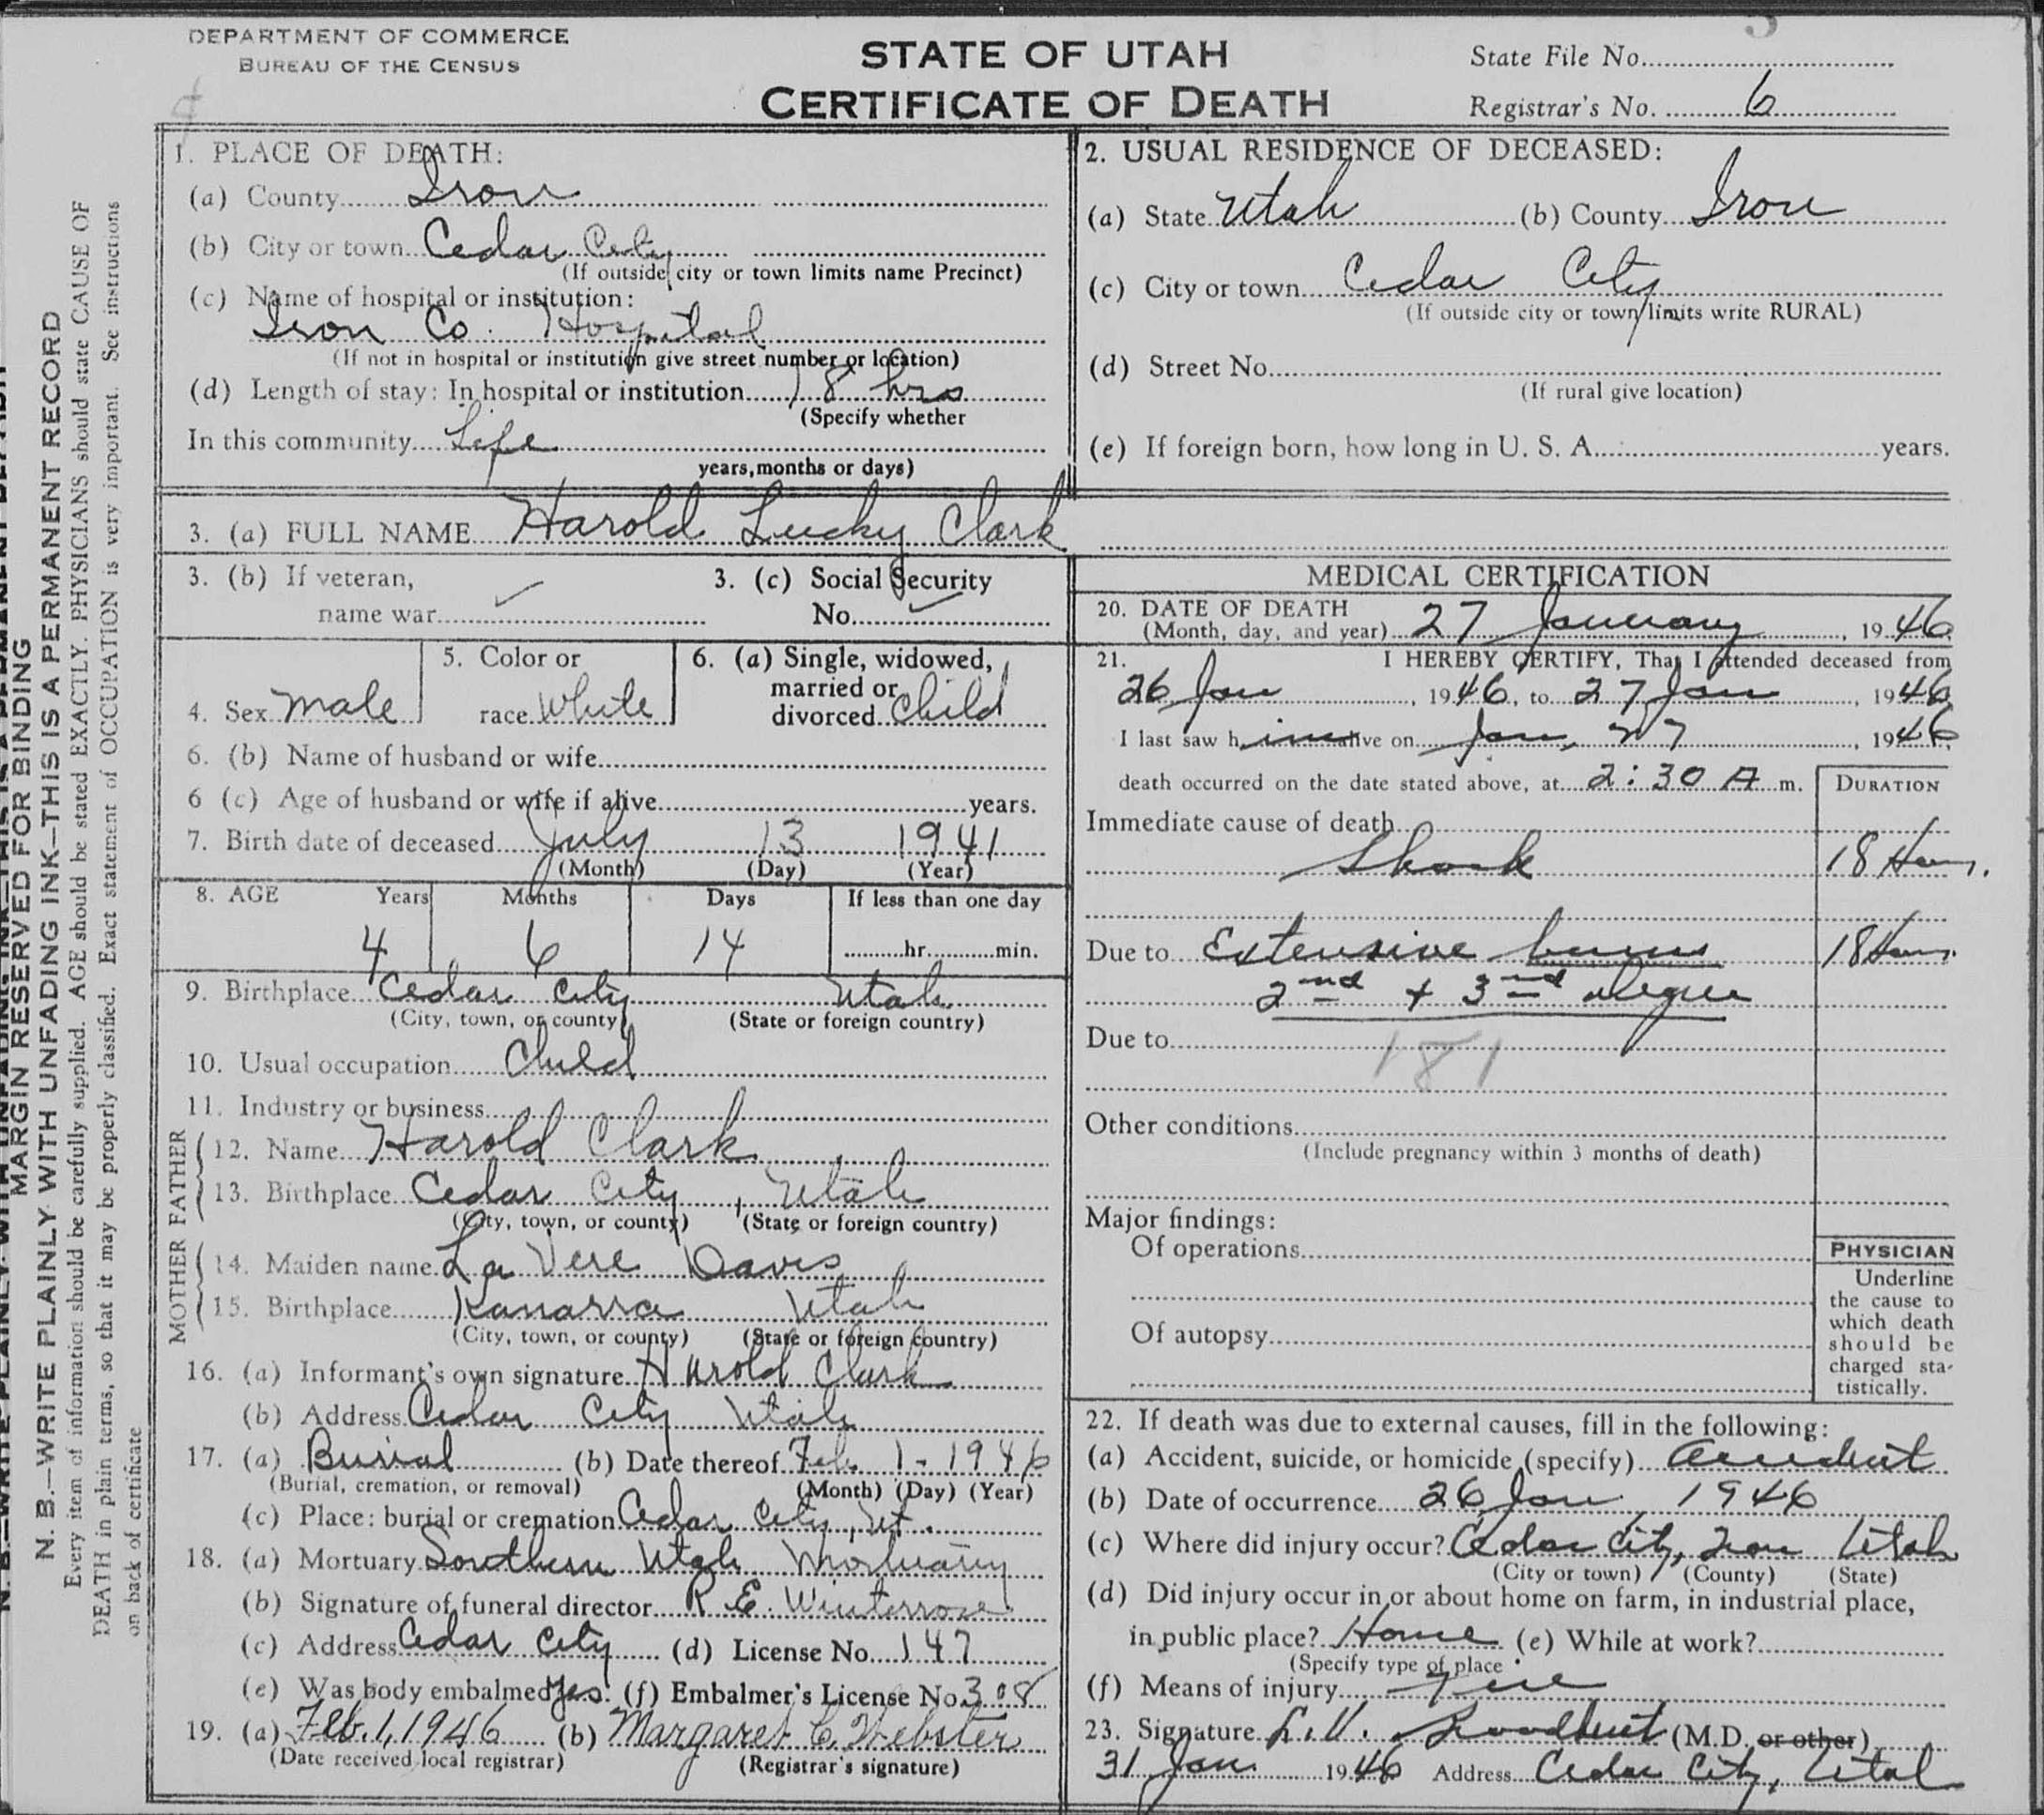 DEPARTMENT OF COMMERCE
BUREAU OF THE CENSUS
STATE OF UTAH
CERTIFICATE OF DEATH
State File No.
Registrar's No. 6
MARGIN RESERVED FOR BINDING
N. B.—WRITE PLAINLY WITH UNFADING INK—THIS IS A PERMANENT RECORD
Every item of information should be carefully supplied. AGE should be stated EXACTLY. PHYSICIANS should state CAUSE OF
DEATH in plain terms, so that it may be properly classified. Exact statement of OCCUPATION is very important. See instructions
on back of certificate
1. PLACE OF DEATH:
(a) County Iron
(b) City or town Cedar City
(If outside city or town limits name Precinct)
(c) Name of hospital or institution:
Iron Co. Hospital
(If not in hospital or institution give street number or location)
(d) Length of stay: In hospital or institution 18 hrs
(Specify whether
In this community Life
years, months or days)
2. USUAL RESIDENCE OF DECEASED:
(a) State Utah (b) County Iron
(c) City or town Cedar City
(If outside city or town limits write RURAL)
(d) Street No.
(If rural give location)
(e) If foreign born, how long in U. S. A. years.
3. (a) FULL NAME Harold Lucky Clark
3. (b) If veteran,
name war ✓
3. (c) Social Security
No. ✓
4. Sex Male
5. Color or
race White
6. (a) Single, widowed,
married or
divorced Child
6. (b) Name of husband or wife
6 (c) Age of husband or wife if alive years.
7. Birth date of deceased July 13 1941
(Month) (Day) (Year)
8. AGE Years Months Days If less than one day
4 6 14 hr. min.
9. Birthplace Cedar City Utah
(City, town, or county) (State or foreign country)
10. Usual occupation Child
11. Industry or business
FATHER
12. Name Harold Clark
13. Birthplace Cedar City, Utah
(City, town, or county) (State or foreign country)
MOTHER
14. Maiden name La Vere Davis
15. Birthplace Kanarra Utah
(City, town, or county) (State or foreign country)
16. (a) Informant's own signature Harold Clark
(b) Address Cedar City Utah
17. (a) Burial (b) Date thereof Feb. 1 - 1946
(Burial, cremation, or removal) (Month) (Day) (Year)
(c) Place: burial or cremation Cedar City, Ut.
18. (a) Mortuary Southern Utah Mortuary
(b) Signature of funeral director R. E. Winterrose
(c) Address Cedar City (d) License No. 147
(e) Was body embalmed Yes. (f) Embalmer's License No. 308
19. (a) Feb. 1, 1946 (b) Margaret C. Webster
(Date received local registrar) (Registrar's signature)
MEDICAL CERTIFICATION
20. DATE OF DEATH
(Month, day, and year) 27 January, 1946
21. I HEREBY CERTIFY, That I attended deceased from
26 Jan, 1946, to 27 Jan, 1946
I last saw him alive on Jan, 27, 1946
death occurred on the date stated above, at 2:30 A m.
DURATION
Immediate cause of death
Shock 18 Hours.
Due to Extensive burns 18 Hours.
2nd + 3rd degree
Due to
181
Other conditions
(Include pregnancy within 3 months of death)
Major findings:
Of operations
Of autopsy
PHYSICIAN
Underline
the cause to
which death
should be
charged sta-
tistically.
22. If death was due to external causes, fill in the following:
(a) Accident, suicide, or homicide (specify) Accident
(b) Date of occurrence 26 Jan 1946
(c) Where did injury occur? Cedar City, Iron Utah
(City or town) (County) (State)
(d) Did injury occur in or about home on farm, in industrial place,
in public place? Home (e) While at work?
(Specify type of place
(f) Means of injury Fire
23. Signature (M.D. or other)
31 Jan 1946 Address Cedar City, Utah